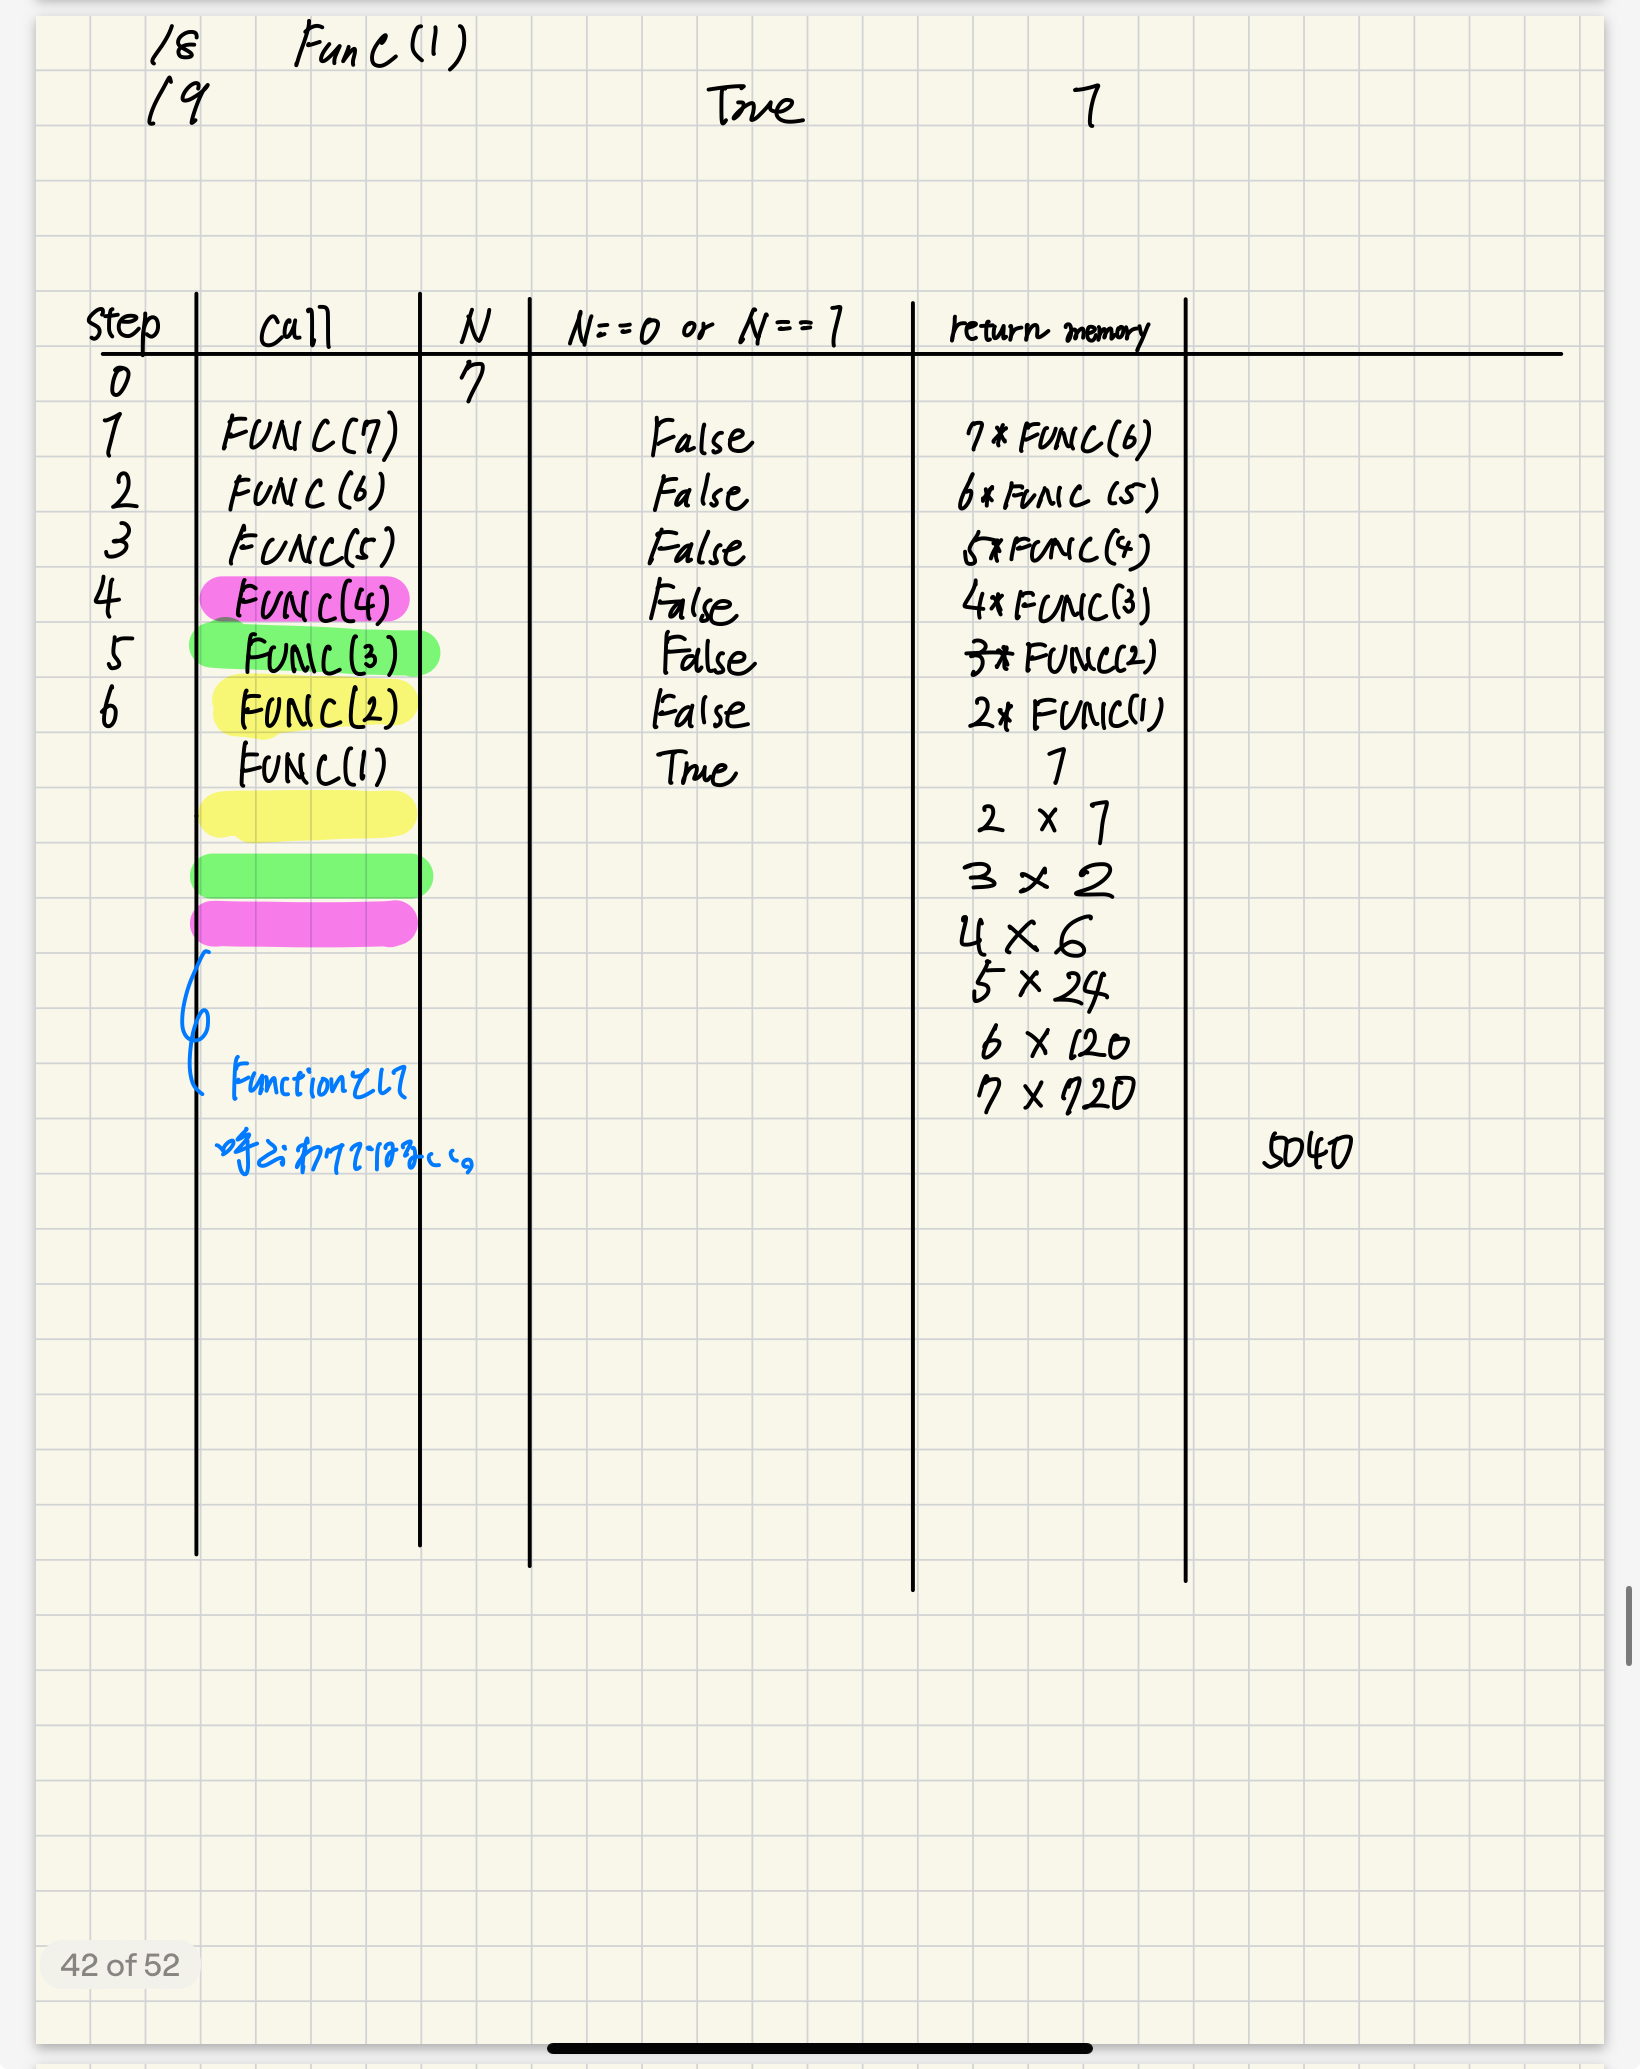 18 Func(1)
19 True 1
Step call N N==0 or N==1 return memory
0 7
1 FUNC(7) False 7*FUNC(6)
2 FUNC(6) False 6*FUNC(5)
3 FUNC(5) False 5*FUNC(4)
4 FUNC(4) False 4*FUNC(3)
5 FUNC(3) False 3*FUNC(2)
6 FUNC(2) False 2*FUNC(1)
FUNC(1) True 1
2 × 1
3 × 2
4 × 6
5 × 24
6 × 120
7 × 720
Functionとして
呼ぶわけではない。
5040
42 of 52